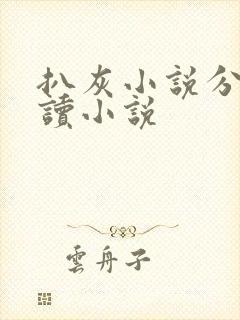 扒灰小説分
讀小説
雲舟子